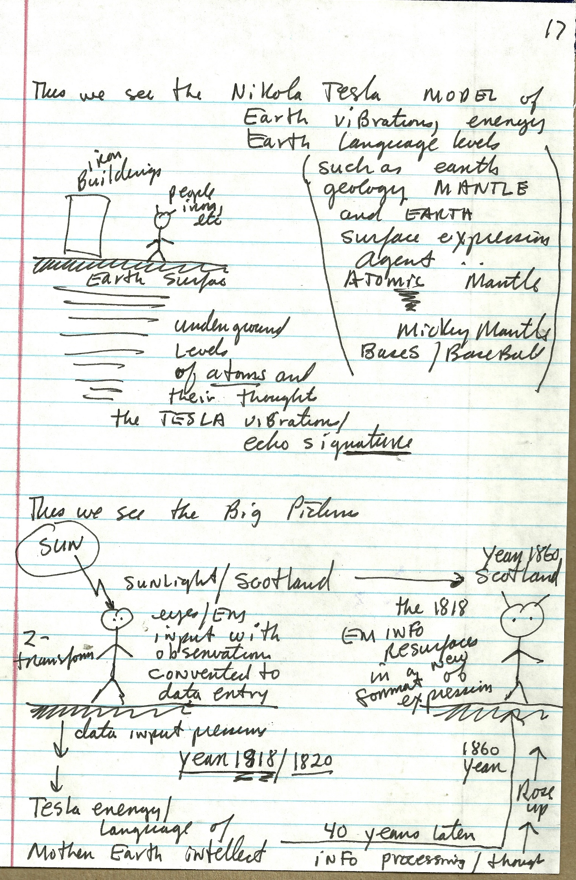 17
Thus we see the Nikola Tesla MODEL of
Earth viBrations, energy
Earth Language levels
(such as earth
geology MANTLE
and EARTH
surface expression
Agent
Atomic Mantle
Mickey Mantle
Bases / BaseBall
iron
Buildings
people
iron,
etc
Earth Surface
underground
Levels
of atoms and
their thought
the TESLA viBration/
echo signature
Thus we see the Big Picture
SUN
sunlight/Scotland
year 1860
Scotland
eyes/EM
input with
observation
converted to
data entry
Z-
transform
the 1818
EM INFO
Resurfaces
in a new
format of
expression
data input process
year 1818/1820
1860
year
Rose
up
Tesla energy/
Language of
Mother Earth intellect
40 years later
INFO processing/thought